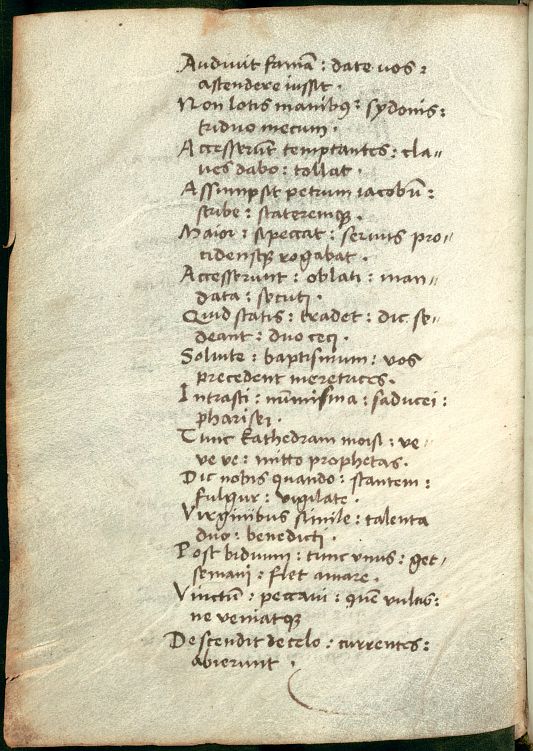 Audiuit famā : date uos :
astendere iussit .
Non lotis manibꝯ : sydonis :
triduo mecum .
Accesserūt temptantes : cla〃
ues dabo : tollat .
Assumpsit petrum iacobū :
scribe : stateremqꝫ .
Maior : si peccat : seruus pro〃
cidensqꝫ rogabat .
Accesserunt : oblati : man〃
data : secuti .
Quid statis : tradet : dic se〃
deant : duo ceci .
Soluite : baptismum : uos
precedent meretrices .
Intrasti : numisma : saducei :
pharisei .
Tunc kathedram moisi : ve〃
ve ve : mitto prophetas .
Dic nobis quando : stantem :
fulgur : vigilate .
Virginibus simile : talenta
duo : benedicti .
Post biduum : tunc vnus : get〃
semani : flet amare .
Vinctū : peccaui : quē vultis :
ne veniatqꝫ
Descendit de celo : currentes :
abierunt .